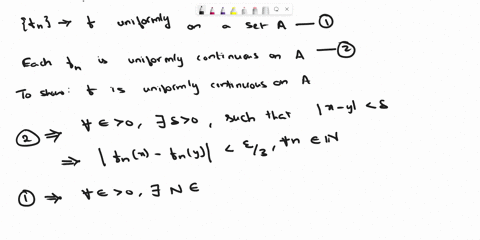 {fn} → f uniformly on a set A — ①
Each fn is uniformly continuous on A — ②
To show: f is uniformly continuous on A
② ⇒ ∀ ϵ >0, ∃ δ>0, such that |x-y| <δ
⇒ | fn(x) - fn(y)| < ε/3, ∀n ∈ ℕ
① ⇒ ∀ ϵ >0, ∃ N ∈